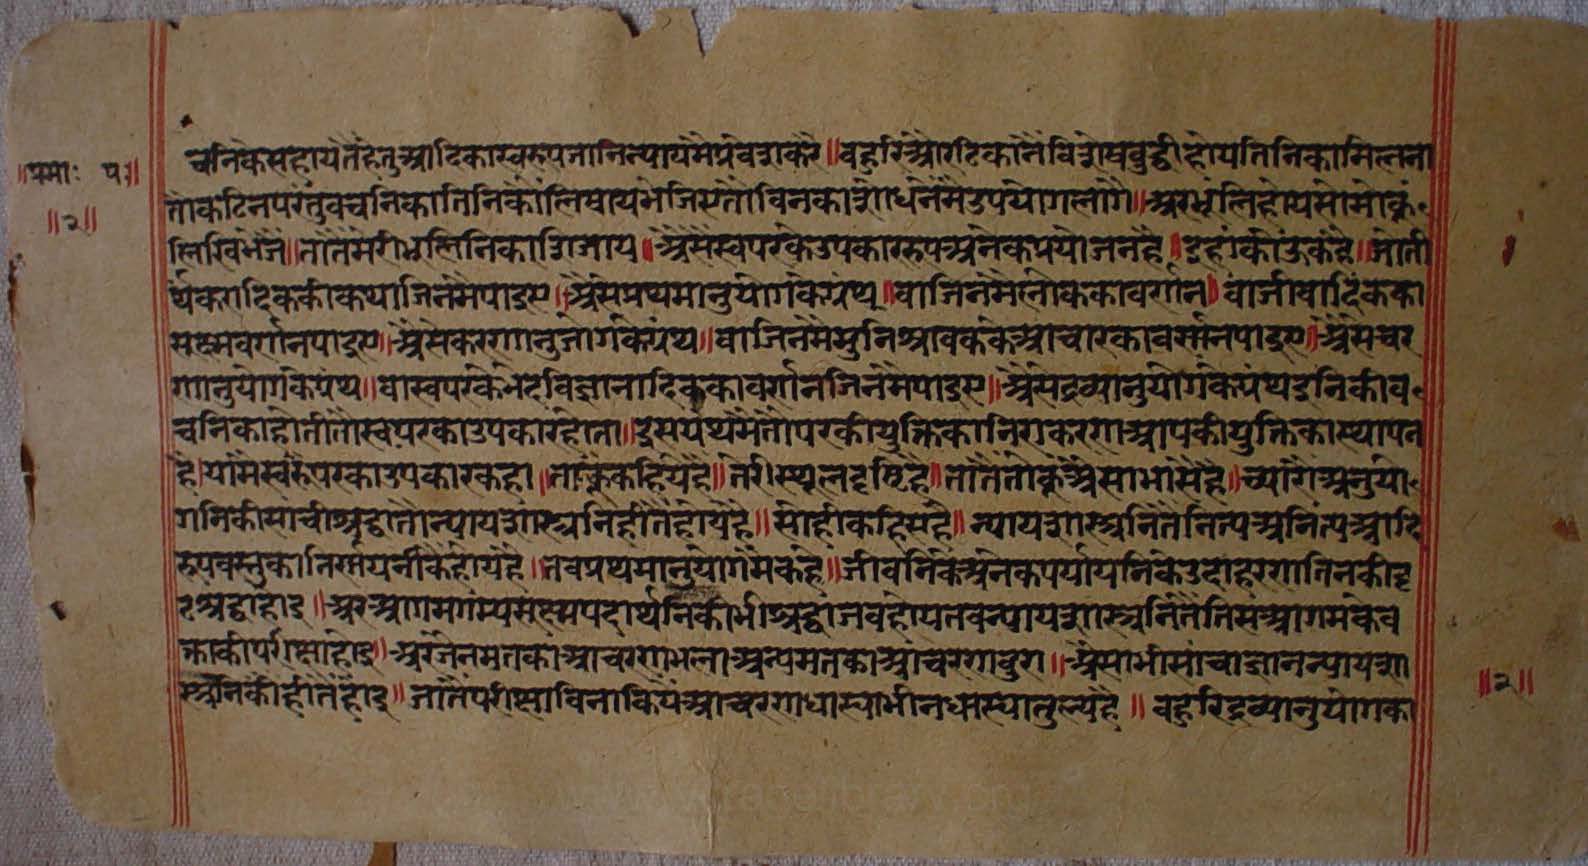 ॥प्रमाः प॥
॥२॥
चनिकेसहायतैंहेतुआदिकास्वरुपजानिन्यायमैंप्रवेशकरै॥बहुरिऔरटिकानैंविशेषबुद्धीहोयतिनिकामिलना
तोकठिनपरंतुवचनिकातिनिकीलिषायभेजिएतौविनकाशोधनेंमैंउपयोगलागै॥अरभूलिहोयसोमोकूं
लिखिभेजैं॥तातैंमेरीभूलिनिकाशिजाय॥ऐसैंस्वपरकेउपकाररुपअनेकप्रयोजनहै॥इहांकोऊकहै॥जोती
र्थकरादिककीकथाजिनमैंपाइए॥ऐसेप्रथमानुयोगकेग्रंथ॥वाजिनमैंलोककावर्णन॥वाजीवादिकका
सूक्ष्मवर्णनपाइए॥ऐसेकरणानुजोगकेग्रंथ॥वाजिनमैंमुनिश्रावककेआचारकावर्णनपाइए॥ऐसेचर
णानुयोगकेग्रंथ॥वास्वपरकेभेदविज्ञानादिककावर्णनजिनमैंपाइए॥ऐसेद्रव्यानुयोगकेग्रंथइनिकीव
चनिकाहोतीतौस्वपरकाउपकारहोता॥इसग्रंथमैंतौपरकीयुक्तिकानिराकरणआपकीयुक्तिकास्थापन
है॥यामैंस्वरुपपरकाउपकारकहा॥ताकूंकहियेहै॥तेरीस्थूलदृष्टिहै॥तातैंतोकूंऐसाभासैहै॥च्यारोंअनुयो
गनिकीसाचीश्रद्धातौन्यायशास्त्रनिहीतैंहोयहै॥सोहीकहिएहै॥न्यायशास्त्रनितैंनित्यअनित्यआदि
रुपवस्तुकानिर्णयनीकैंहोयहै॥तबप्रथमानुयोगमैंकहे॥जीवनिकेअनेकपर्यायनिकेउदाहरणतिनकीदृ
ढश्रद्धाहोइ॥अरआगमगम्यसूक्ष्मपदार्थनिकीभीश्रद्धाजबहोयतबन्यायशास्त्रनितैंतिसआगमकेव
क्ताकीपरीक्षाहोइ॥अरजैनमतकाआचरणभलाअन्यमतकाआचरणबुरा॥ऐसाभीसांचाज्ञानन्यायशा
स्त्रनिकीहीतैंहोइ॥जातैंपरीक्षाविनाकियेआचरणधास्याभीनधास्यातुल्यहै॥बहुरिद्रव्यानुयोगका
॥२॥